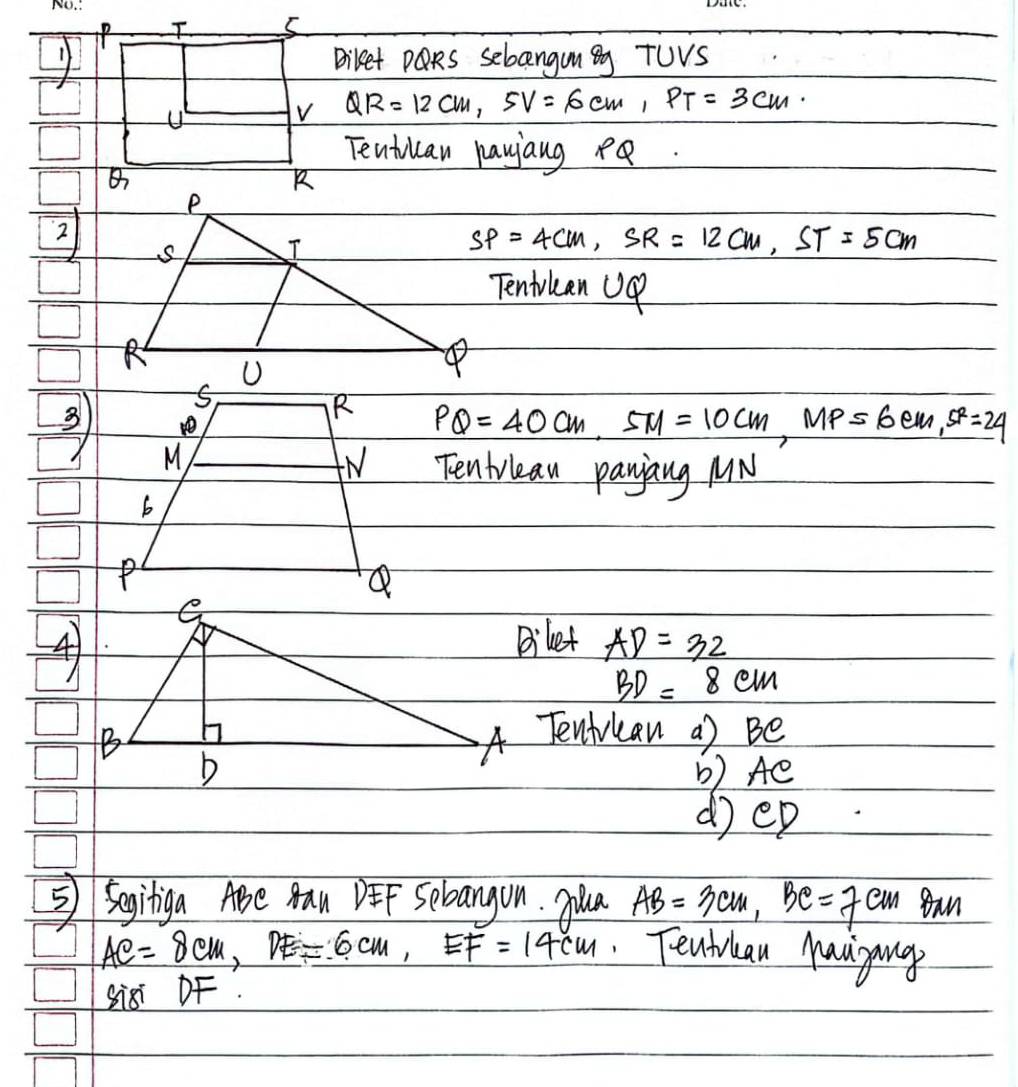 No.:
Date:
1)
P T S
Diket PQRS sebangun dg TUVS
U V
QR = 12 cm, SV = 6 cm, PT = 3 cm.
Q R
Tentukan panjang PQ.
2)
P
S T
SP = 4 cm, SR = 12 cm, ST = 5 cm
Tentukan UQ
R U Q
3)
S R
10
M N
6
P Q
PQ = 40 cm, SM = 10 cm, MP = 6 cm, SR = 24
Tentukan panjang MN
4)
C
B D A
Diket AD = 32
BD = 8 cm
Tentukan a) BC
b) AC
d) CD.
5) Segitiga ABC dan DEF sebangun. Jika AB = 3 cm, BC = 7 cm dan
AC = 8 cm, DE = 6 cm, EF = 14 cm. Tentukan panjang
sisi DF.